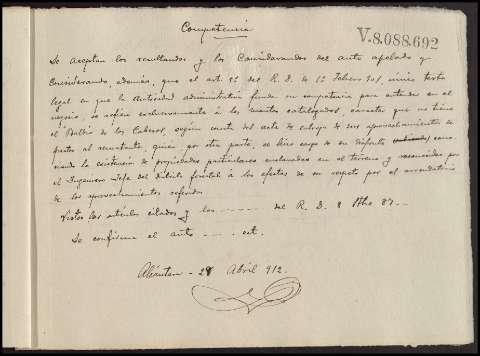 Competencia
V.8.088.692
Se aceptan los resultandos y los Considerandos del auto apelado y
Considerando, además, que el art. 1º del R. D. de 1º Febrero 901, único texto
legal en que la Autoridad administrativa funda su competencia para entender en el
negocio, se refiere exclusivamente á los montes catalogados, carácter que no tiene
el Baldío de los Cabezos, según consta del acta de entrega de sus aprovechamientos de
pastos al rematante, quien por otra parte, se hizo cargo de su disfrute cono-
ciendo la existencia de propiedades particulares enclavadas en el terreno y reconocidas por
el Ingeniero Jefe del Distrito forestal á los efectos de su respeto por el arrendatario
de los aprovechamientos referidos
Vistos los artículos citados y los del R. D. 8 Sbre 87.
Se confirma el auto cet.
Alcántara - 28 Abril 912.